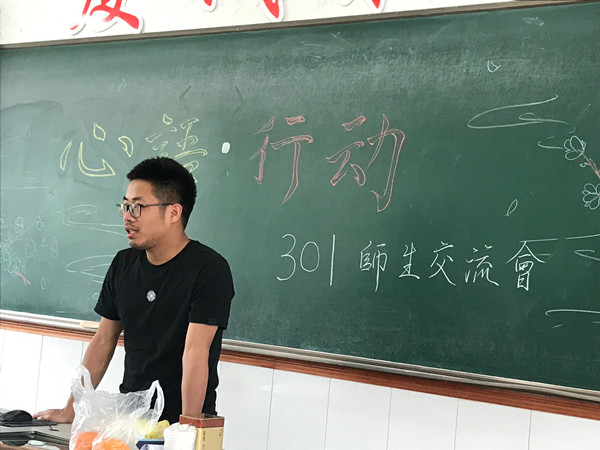 心 · 行动
301 師生交流會